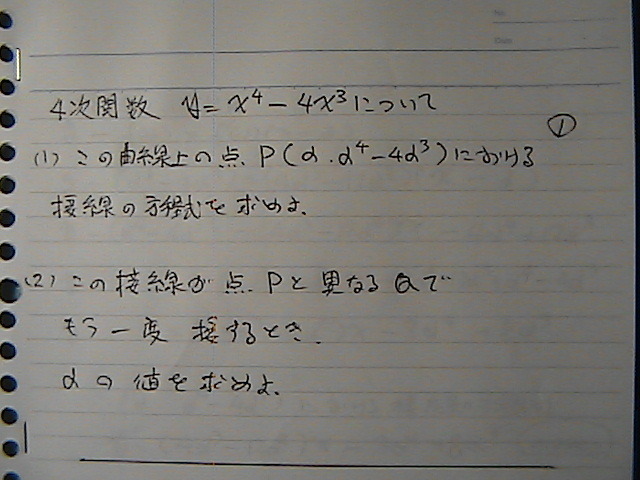 4次関数 y=x⁴-4x³について
①
(1) この曲線上の点 P(α, α⁴-4α³)における
接線の方程式を求めよ.
(2) この接線が点 Pと異なるQで
もう一度 接するとき.
αの値を求めよ.